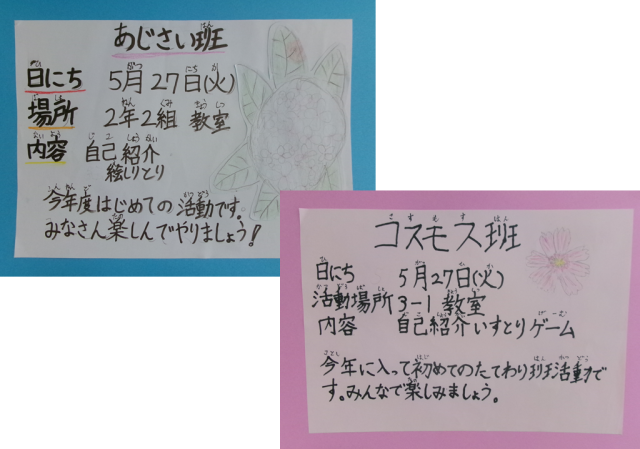 あじさい班
日にち 5月27日(火)
場所 2年2組 教室
内容 自己紹介
絵しりとり
今年度はじめての活動です。
みなさん楽しんでやりましょう!
コスモス班
日にち 5月27日(火)
活動場所 3-1 教室
内容 自己紹介 いすとりゲーム
今年に入って初めてのたてわり班活動で
す。みんなで楽しみましょう。